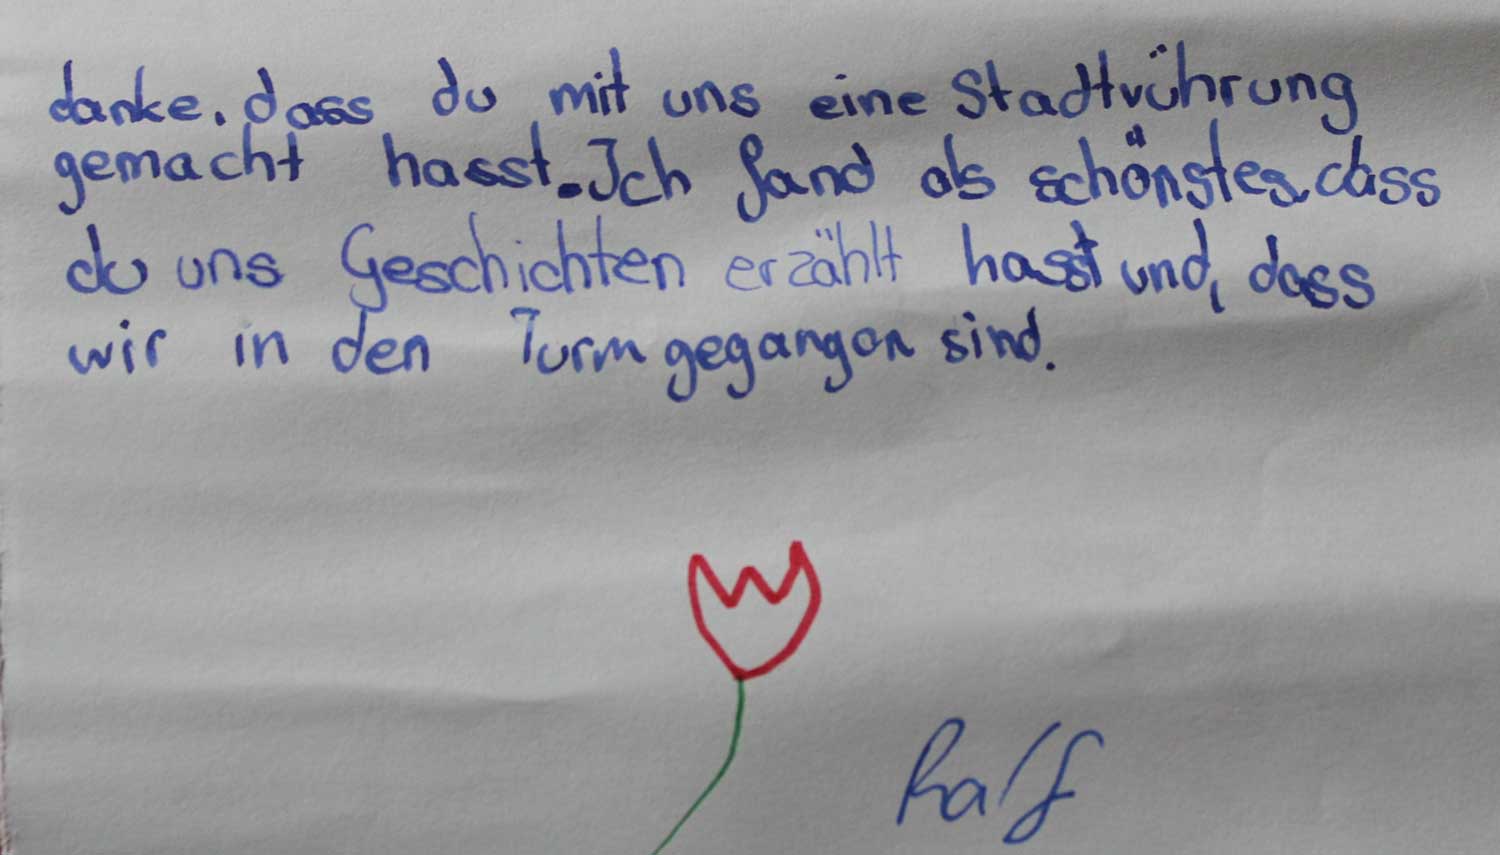 danke. dass du mit uns eine Stadtvührung
gemacht hasst. Ich fand als schönstes. dass
du uns Geschichten erzählt hasst und, dass
wir in den Turm gegangen sind.
Ralf